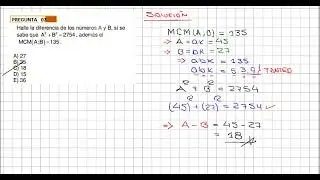 PREGUNTA 03
Halle la diferencia de los números A y B, si se
sabe que A² + B² = 2754, además el
MCM(A;B) = 135.
A) 27
B) 35
C) 18
D) 15
E) 36
SOLUCIÓN
MCM(A;B) = 135
⇒ A = ak = 45
⇒ B = bk = 27
⇒ abk = 135
abk = 5.3.9 TANTEO
A² + B² = 2754
(45)² + (27)² = 2754 ✓
⇒ A - B = 45 - 27
= 18